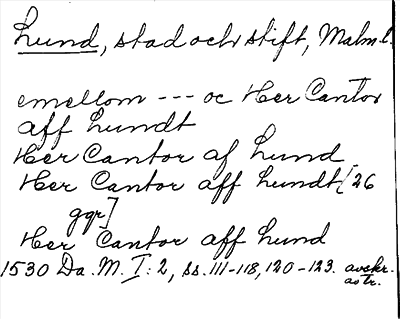 Lund, stad och stift, Malm. l.
emellom --- oc Her Cantor
aff Lundt
Her Cantor af Lund
Her Cantor aff Lundt [26
ggr]
Her Cantor aff Lund
1530 Da. M. I: 2, ss. 111-118, 120-123. avskr.
astr.